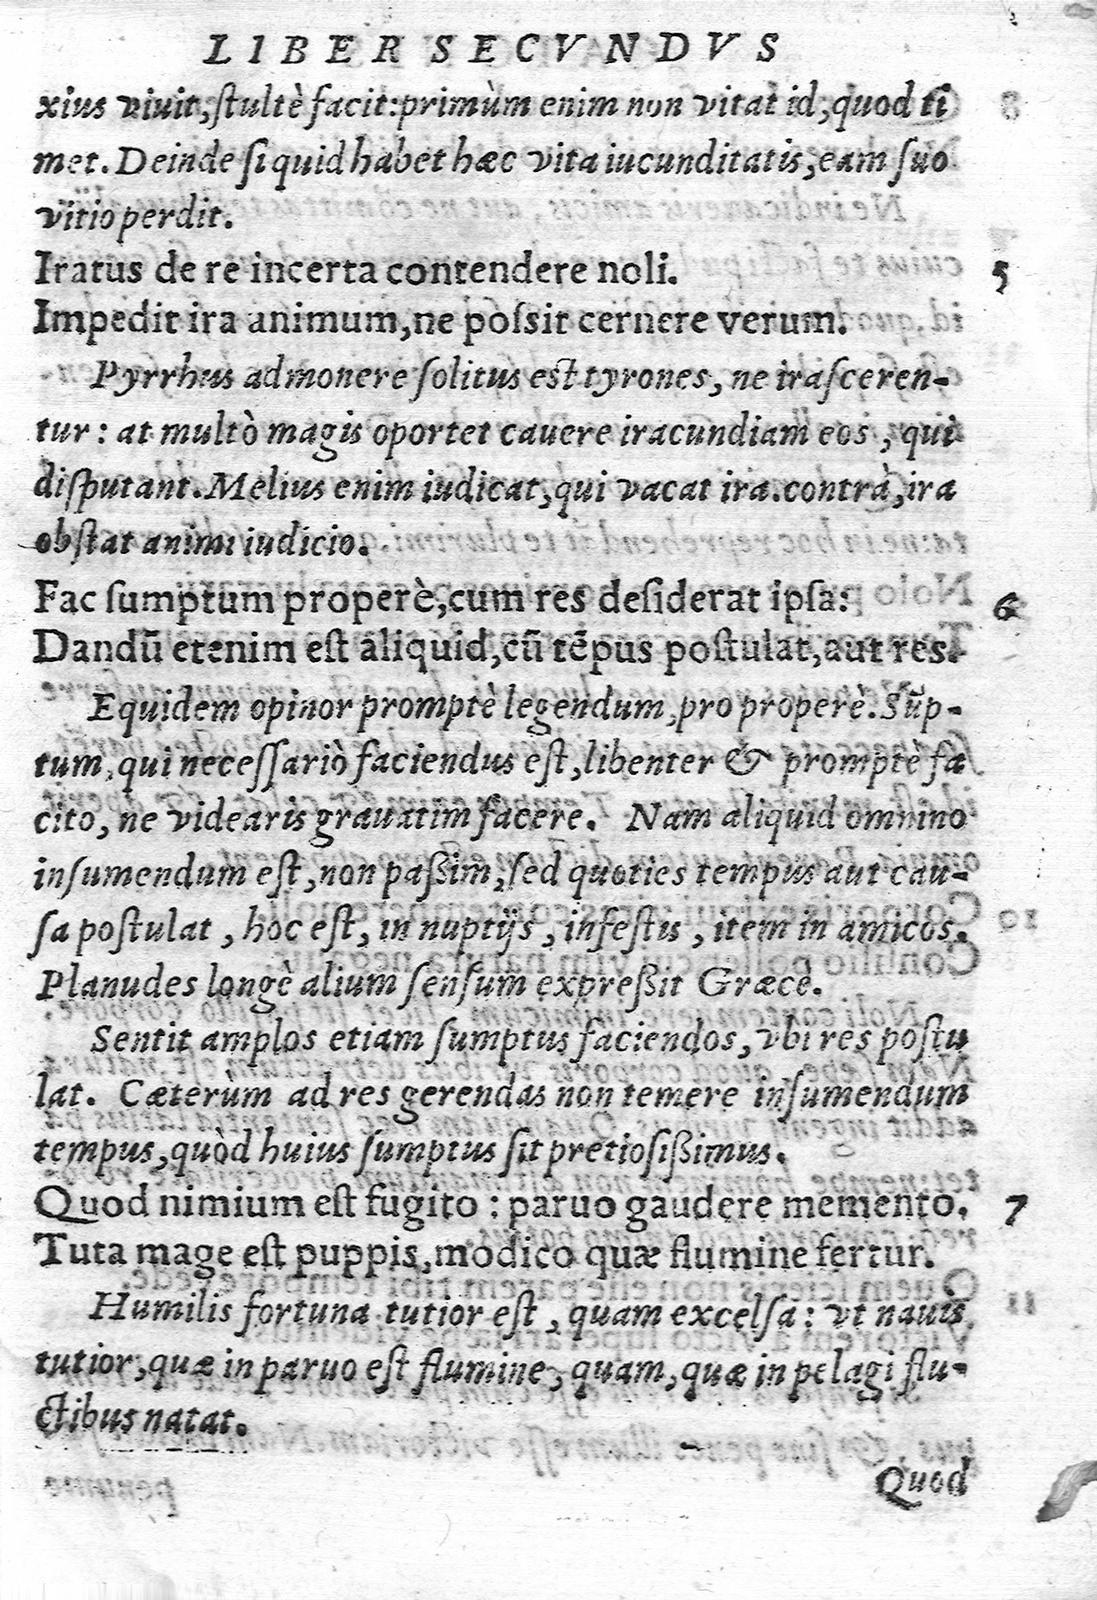 LIBER SECVNDVS
xius viuit, ſtultè facit: primùm enim non vitat id, quod ti
met. Deinde ſi quid habet hæc vita iucunditatis, eam ſuo
vitio perdit.
Iratus de re incerta contendere noli. 5
Impedit ira animum, ne poſsit cernere verum.
Pyrrhus admonere ſolitus eſt tyrones, ne iraſceren-
tur: at multò magis oportet cauere iracundiam eos, qui
diſputant. Melius enim iudicat, qui vacat ira. contrà, ira
obſtat animi iudicio.
Fac ſumptum properè, cum res deſiderat ipſa: 6
Dandū etenim eſt aliquid, cū tẽpus poſtulat, aut res.
Equidem opinor promptè legendum, pro properè. Sūp-
tum, qui neceſſariò faciendus eſt, libenter & promptè fa
cito, ne videaris grauatim facere. Nam aliquid omnino
inſumendum eſt, non paßim, ſed quoties tempus aut cau-
ſa poſtulat, hoc eſt, in nuptijs, in feſtis, item in amicos.
Planudes longè alium ſenſum expreßit Græce.
Sentit amplos etiam ſumptus faciendos, vbi res poſtu
lat. Cæterùm ad res gerendas non temere inſumendum
tempus, quòd huius ſumptus ſit pretioſißimus.
Quod nimium eſt fugito: paruo gaudere memento. 7
Tuta mage eſt puppis, modico quæ flumine fertur.
Humilis fortuna tutior eſt, quam excelſa: vt nauis
tutior, quæ in paruo eſt flumine, quam, quæ in pelagi flu-
ctibus natat.
Quod